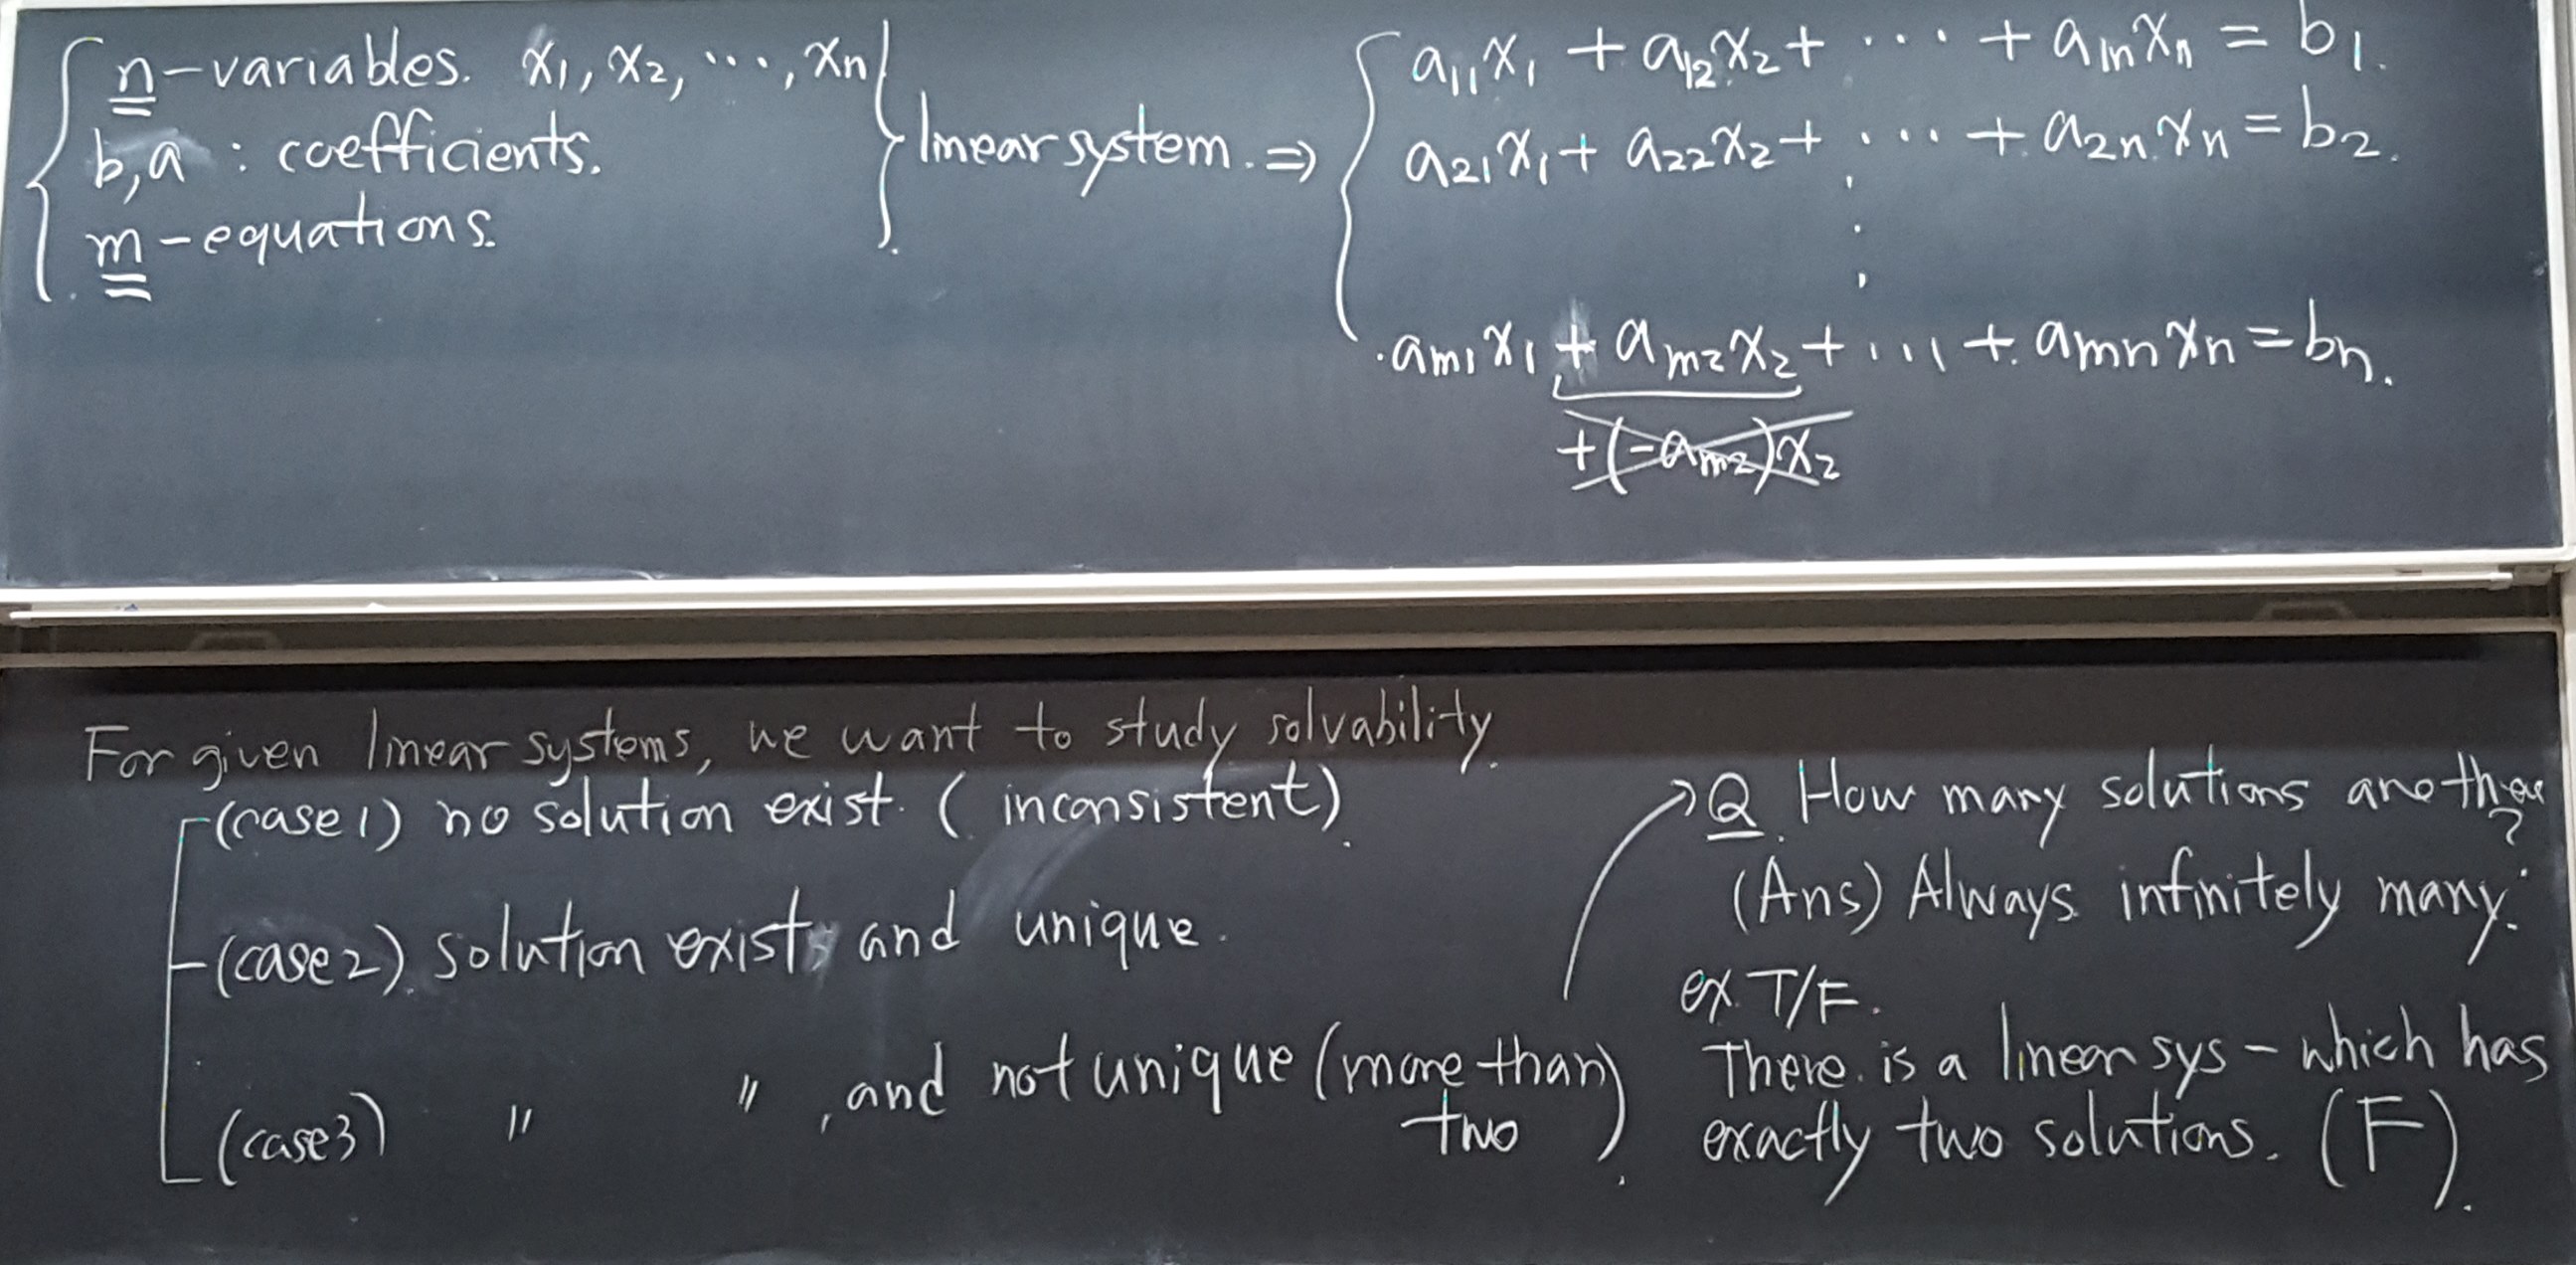 n-variables. x₁, x₂, ⋯, xₙ
b, a : coefficients.
m-equations.
linear system. ⇒
a₁₁x₁ + a₁₂x₂ + ⋯ + a₁ₙxₙ = b₁.
a₂₁x₁ + a₂₂x₂ + ⋯ + a₂ₙxₙ = b₂.
⋮
aₘ₁x₁ + aₘ₂x₂ + ⋯ + aₘₙxₙ = bₙ.
+(-aₘ₂)x₂
For given linear systems, we want to study solvability.
(case 1) no solution exist. (inconsistent).
(case 2). solution exists and unique.
(case 3) 〃 〃, and not unique (more than
two).
Q. How many solutions are there
?
(Ans) Always infinitely many.
ex. T/F.
There is a linear sys - which has
exactly two solutions. (F).